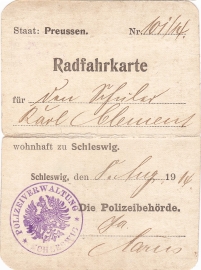 Staat: Preussen. Nr. 101/14.
Radfahrkarte
für den Schüler
Karl Clement
wohnhaft zu Schleswig.
Schleswig, den 8. Aug. 1914.
Die Polizeibehörde.
POLIZEIVERWALTUNG